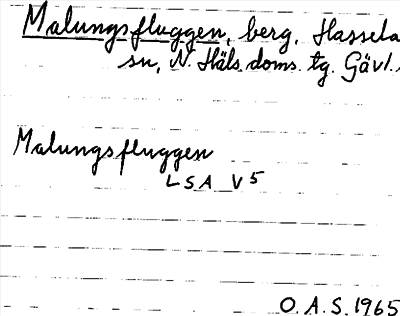 Malungsfluggen, berg, Hassela
sn, N. Häls. doms. tg. Gävl.
Malungsfluggen
LSA V5
O.A.S. 1965